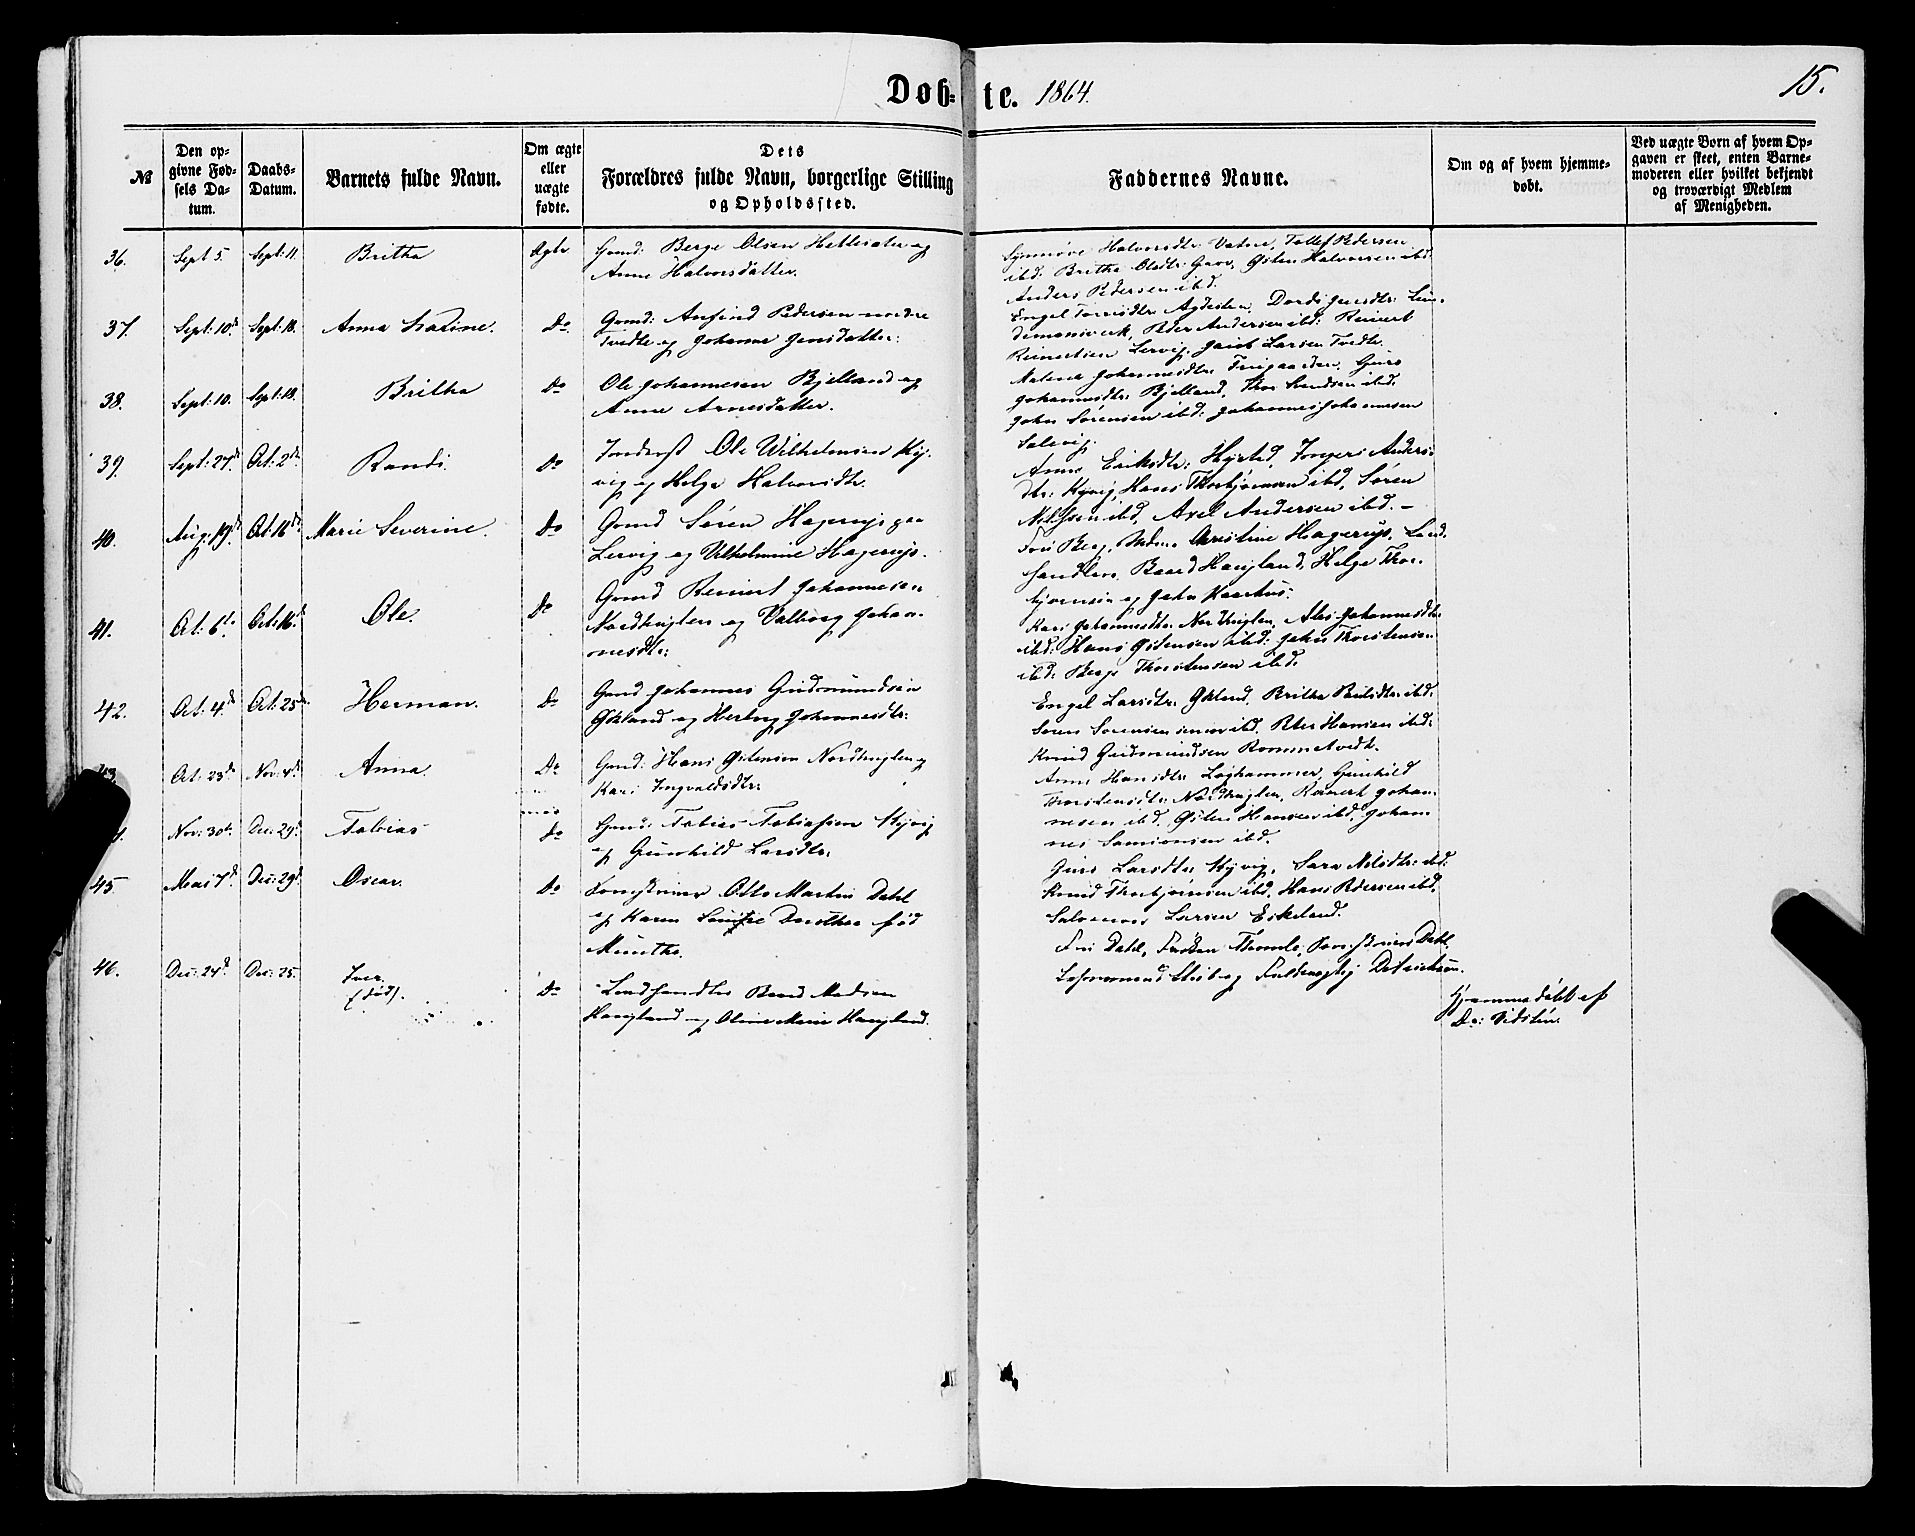 Døb-te. 1864.
15.
№
Den op-
givne Fød-
sels Da-
tum.
Daabs-
Datum.
Barnets fulde Navn.
Om ægte
eller
uægte
fødte.
Dets
Forældres fulde Navn, borgerlige Stilling
og Opholdssted.
Faddernes Navne.
Om og af hvem hjemme-
døbt.
Ved uægte Børn af hvem Op-
gaven er skeet, enten Barne-
moderen eller hvilket bekjendt
og troværdigt Medlem
af Menigheden.
36. Sept 5. Sept: 11. Britha Ægte Gmd: Berge Olsen og
Anne Halvorsdatter.
Halvorsdtr: Vatne, Tollef Pedersen
ibd: Britha Olsdtr: Østen Halvorsen ibd:
Anders Pedersen ibd.
37. Sept: 10d Sept: 18. Anna Do Gmd: Anfind Pedersen nordre
Tvedte og Johanne Jensdatter.
Engel Agdesten,
Peder Andersen ibd: Reinert
Reinertsen Lervig. Jacob Larsen Tvedte.
38. Sept: 10. Sept: 18. Britha Do Ole Johannesen Bjelland og
Anne Arnesdatter.
Malena Johannesdtr:
Johannesdtr: Bjelland, ibd.
John Sørensen ibd: Johannes Johannesen
Salevig.
39. Sept: 27d. Oct: 2d. Randi. Do Inderst Ole Wilhelmsen Ky-
vig og Helga Halvorsdtr.
Anne Eriksdtr: Anders-
dtr: Kyvig, Hans Thorbjørnsen ibd, Søren
Nilssen ibd, Axel Andersen ibd. -
40. Aug: 19d. Oct: 16d. Marie Severine. Do Gmd Søren Hagerup paa
Lervig og Vilhelmine Hagerup.
Fru Berg, Mdme Christine Hagerup, Land-
handler Baard Haugland, Helge Thor-
bjørnsen og John
41. Oct: 6t. Oct: 16d Ole. Do Gmd Reinert Johannesen
Nordhuglen og Valborg Johan-
nesdtr:
Kari Johannesdtr: Johannesdtr:
ibd: Hans Østensen ibd: John Thorstensen
ibd: Berge Thorstensen ibd.
42. Oct: 4d Oct: 25d Herman. Do Gmd Johannes Gudmundsen
Økland og Herborg Johannesdtr:
Engel Larsdtr: Økland, Britha ibd:
Søren Sørensen ibd. Peter Hansen ibd:
Knud Gudmundsen Rommetvedt.
Oct: 23d Nov: 4d Anna. Do Gmd: Hans Østensen Nordhuglen og
Kari Ingvaldsdtr:
Anne Hansdtr: Løghammer, Gunhild
Thorstensdtr: Nordhuglen, Reinert Johan-
nesen ibd. Østen Hansen ibd. Johan-
nes Samsonsen ibd.
Nov: 30t. Dec: 29d Tobias Do Gmd: Tobias Tobiassen Kyvig
og Gunhild Larsdtr:
Guro Larsdtr: Kyvig, Sara Nilsdtr: ibd:
Knud Thorbjørnsen ibd. Hans Pedersen ibd.
Larsen Eskeland.
45. 7d. Dec: 29d Oscar. Do Otto Martin Dahl
og Karen Dorothea fød
Munthe.
Fru Dahl, Frøken Dahl.
og
46. Dec: 24d Dec: 25. Iver
(død). Do Landhandler Baard Madsen
Haugland og Oline Marie Haugland.
Hjemmedøbt af